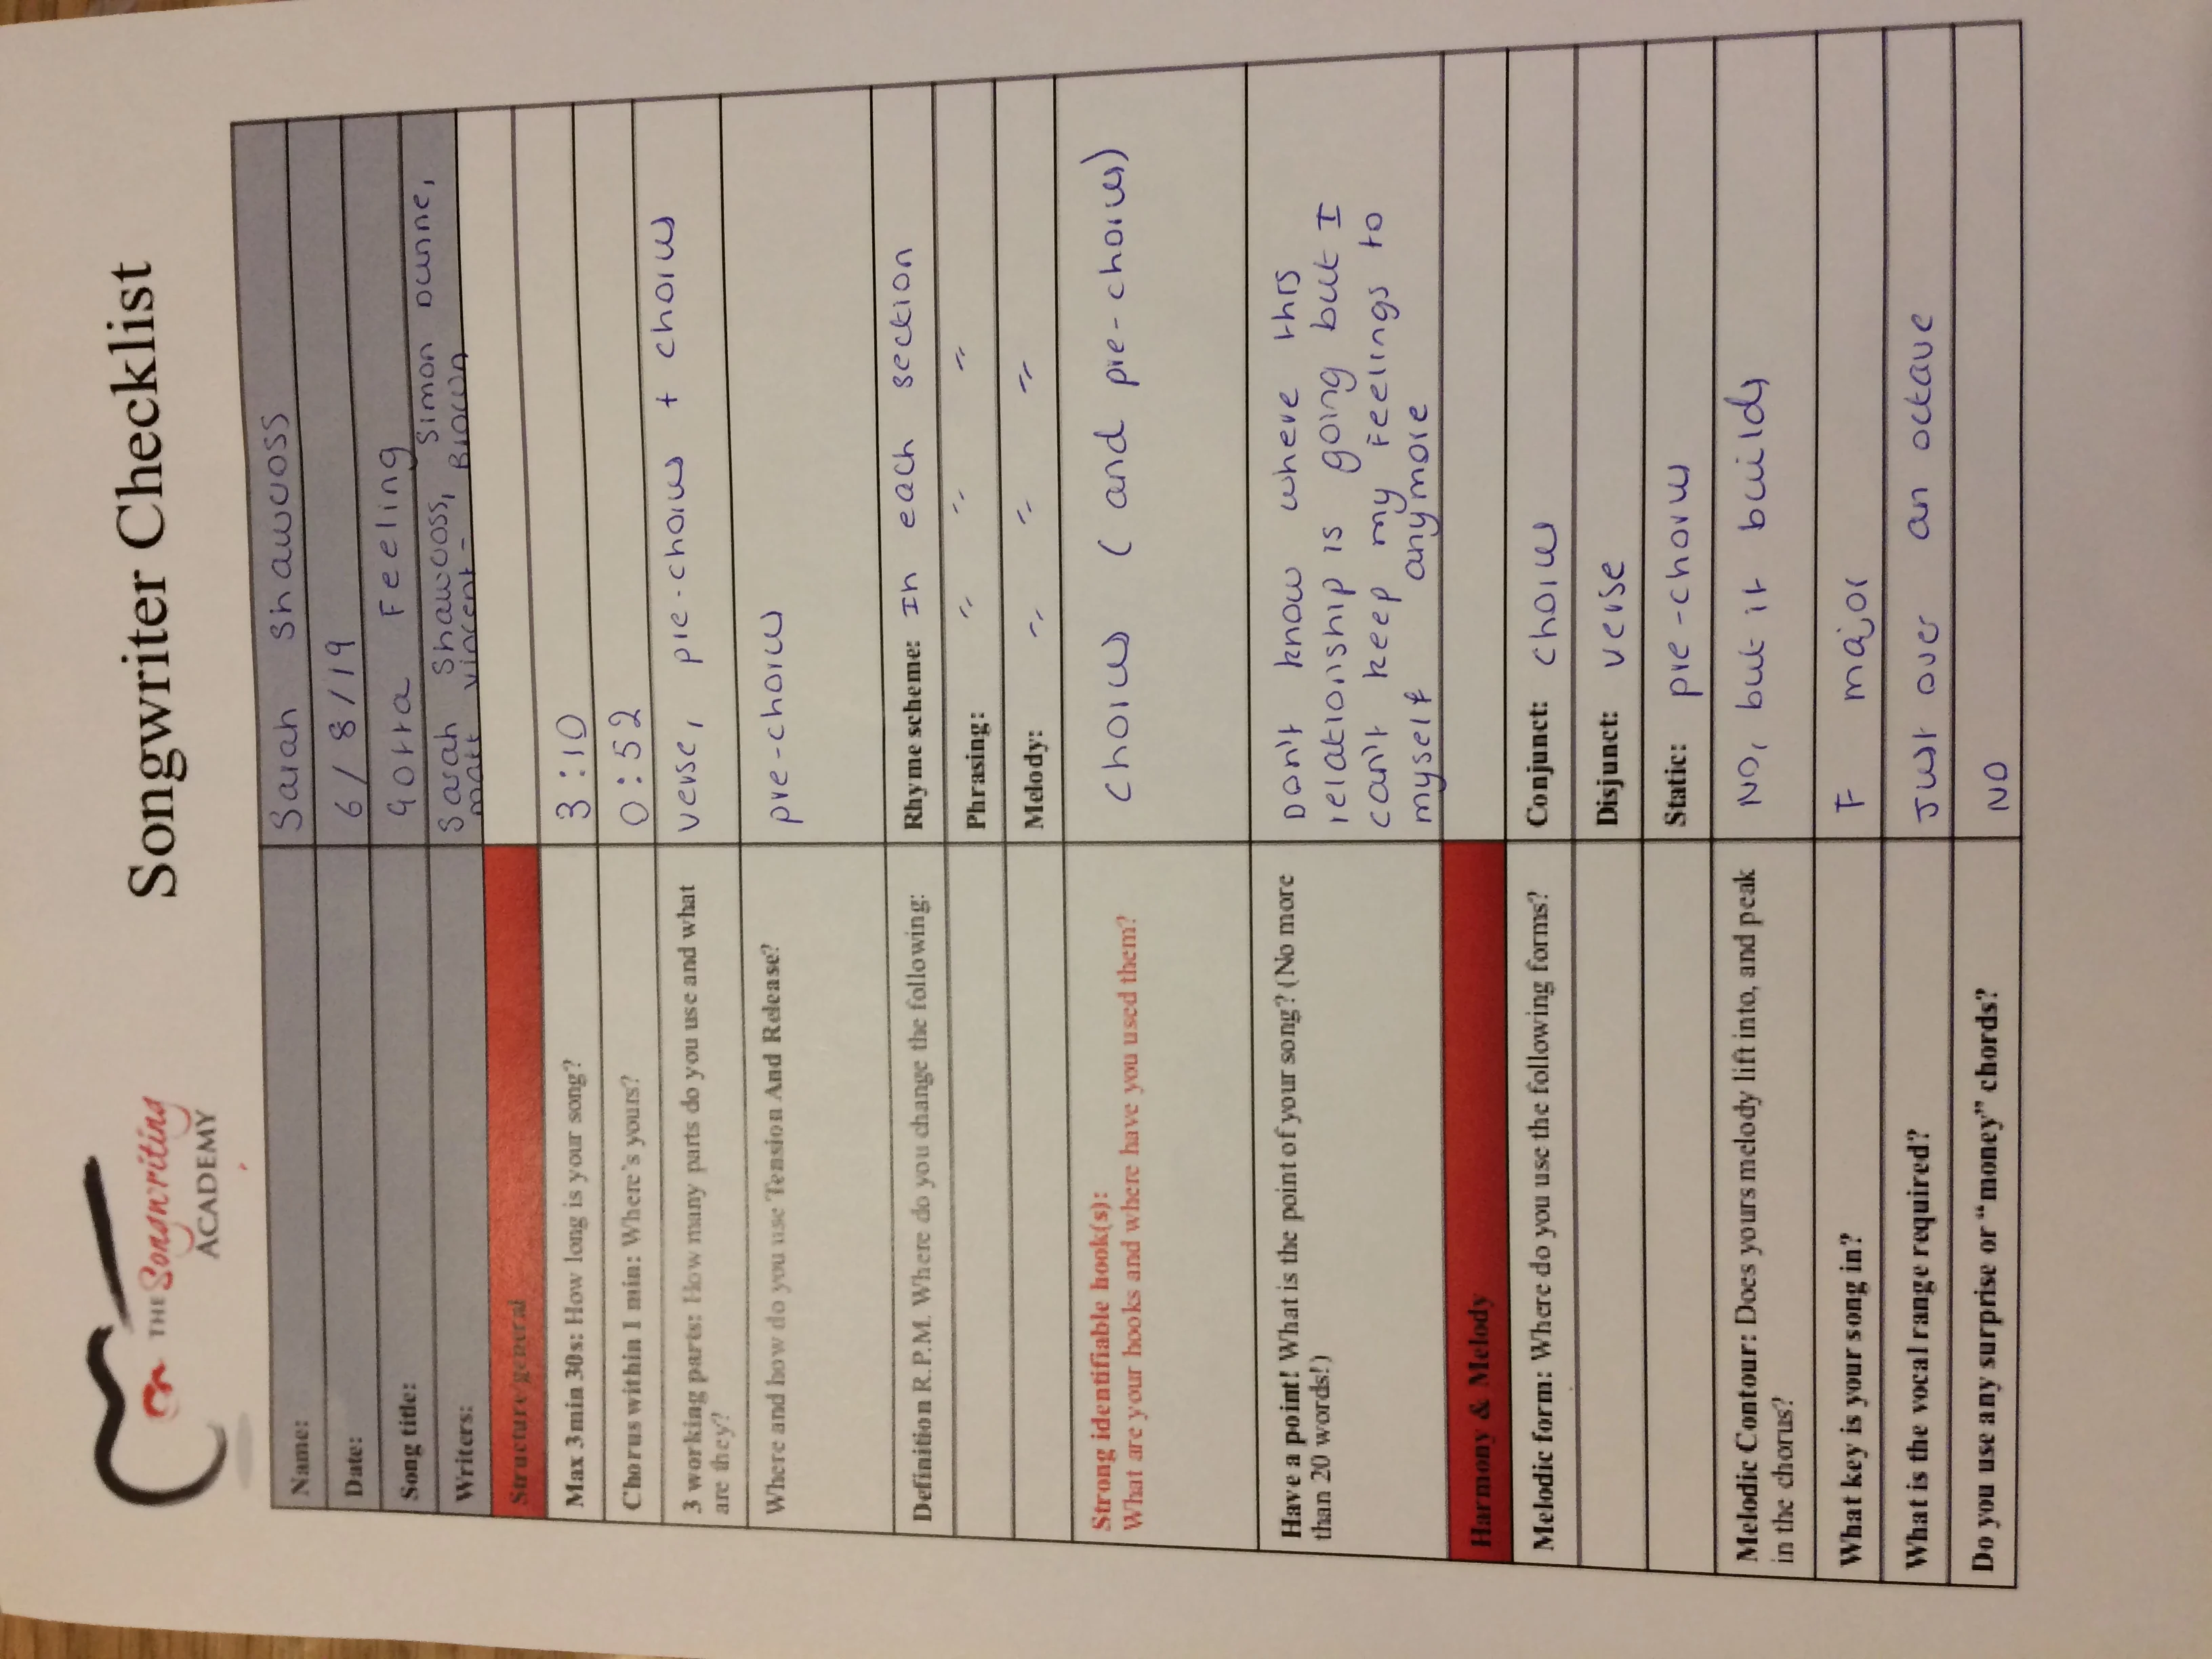 THE Songwriting
ACADEMY
Songwriter Checklist
Name: Sarah Shawcross
Date: 6/8/19
Song title: Gotta Feeling
Writers: Sarah Shawcross, Simon Dunne,
Matt Vincent-Brown
Structure/general
Max 3min 30s: How long is your song? 3:10
Chorus within 1 min: Where's yours? 0:52
3 working parts: How many parts do you use and what
are they? verse, pre-chorus + chorus
Where and how do you use Tension And Release? pre-chorus
Definition R.P.M. Where do you change the following: Rhyme scheme: In each section
Phrasing: " " "
Melody: " " "
Strong identifiable hook(s):
What are your hooks and where have you used them? chorus (and pre-chorus)
Have a point! What is the point of your song? (No more
than 20 words!)
Don't know where this
relationship is going but I
can't keep my feelings to
myself anymore
Harmony & Melody
Melodic form: Where do you use the following forms? Conjunct: chorus
Disjunct: verse
Static: pre-chorus
Melodic Contour: Does yours melody lift into, and peak
in the chorus? No, but it builds
What key is your song in? F major
What is the vocal range required? Just over an octave
Do you use any surprise or "money" chords? No